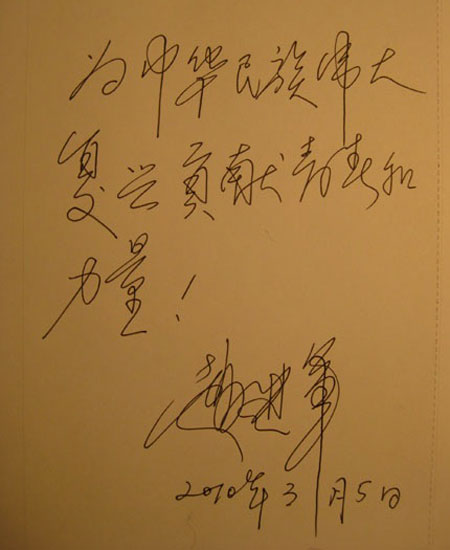 为中华民族伟大
复兴贡献青春和
力量!
赵进军
2010年3月5日